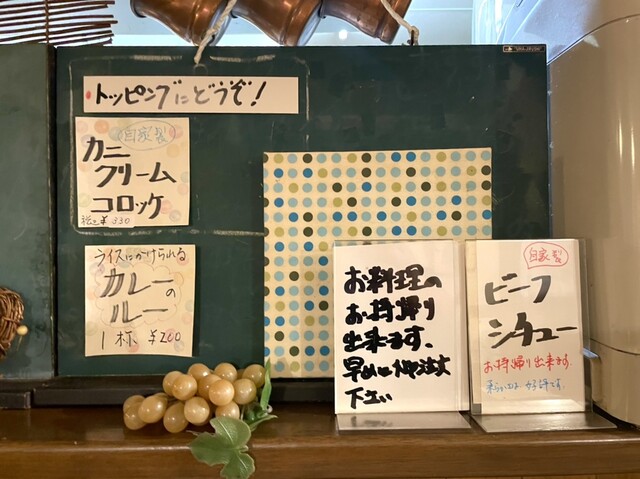 トッピングにどうぞ!
自家製
カニ
クリーム
コロッケ
税込¥330
ライスにかけられる
カレーの
ルー
1杯 ¥200
お料理の
お持帰り
出来ます、
早めに御注文
下さい
自家製
ビーフ
シチュー
お持帰り出来ます。
好評です。